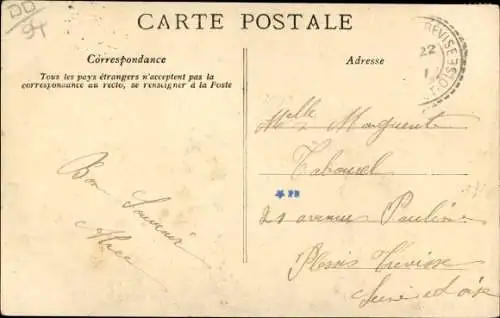 DD
94
CARTE POSTALE
Correspondance
Tous les pays étrangers n'acceptent pas la
correspondance au recto, se renseigner à la Poste
Adresse
REVISE
22
1
OISE
Melle Marguerite
Tabourel
21 avenue Pauline
Plessis Trevisse
Seine et Oise
Bon Souvenir